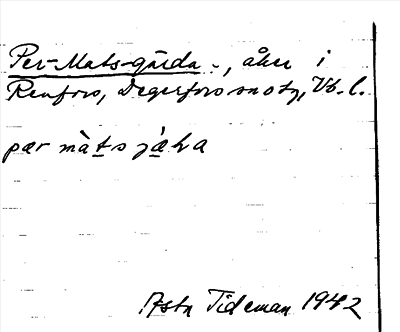 Per-Mats-gärda -, åker i
Renfors, Degerfors sn o tg, Vb. l.
pær màts jǽɽa
Astn Tideman 1942